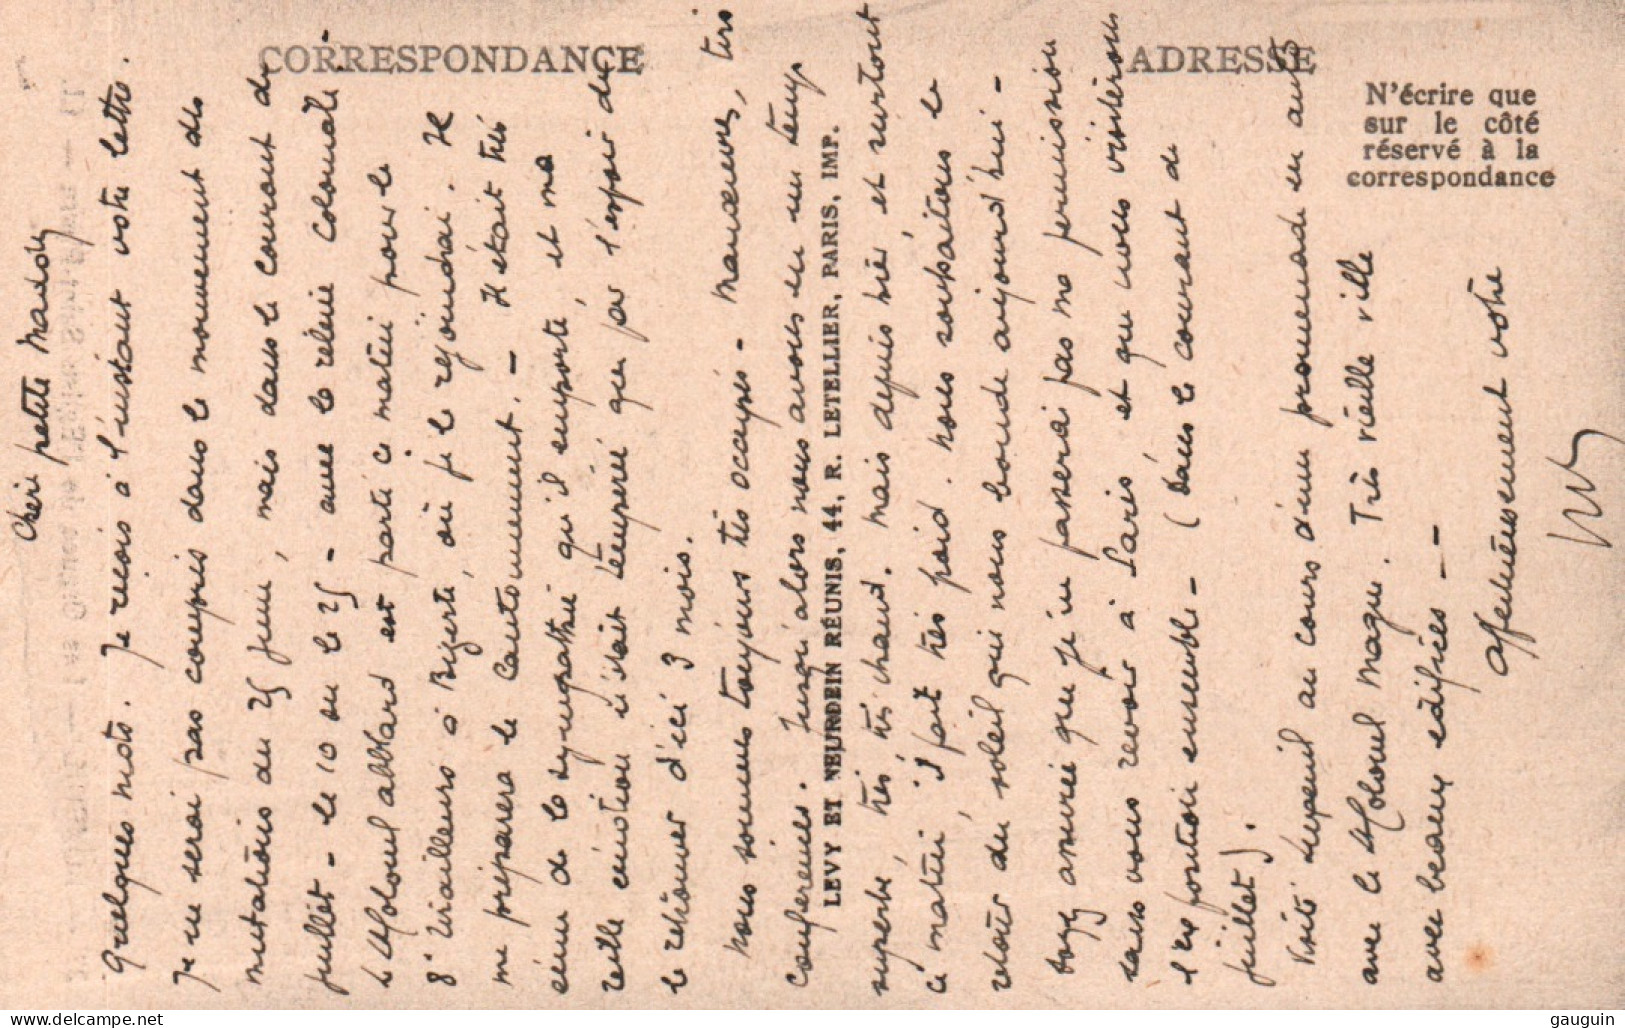 CORRESPONDANCE
ADRESSE
N'écrire que
sur le côté
réservé à la
correspondance
LEVY ET NEURDEIN RÉUNIS, 44, R. LETELLIER, PARIS, IMP.
Chère petite
Quelques mots. Je reçois à l'instant votre lettre.
Je ne serai pas compris dans le mouvement des
mutations du 25 juin, mais dans le courant de
juillet - le 10 ou le 25 - avec la relève coloniale.
Le Lt Colonel est parti ce matin pour le
8e Tirailleurs à Bizerte, où je le rejoindrai. Il
me préparera le cantonnement. - Il était très
ému de la sympathie qu'il emporte, et ma
réelle émotion n'était tempérée que par l'espoir de
le retrouver d'ici 3 mois.
Nous sommes toujours très occupés - manœuvres, tirs
conférences. Jusqu'alors nous avons eu un temps
superbe, très, très chaud. Mais depuis hier et surtout
ce matin, il fait très froid. Nous souhaitons le
retour du soleil qui nous boude aujourd'hui -
Soyez assurée que je ne passerai pas ma permission
sans vous revoir à Paris et que nous visiterons
l'exposition ensemble - (Dans le courant de
juillet).
Visité au cours d'une promenade en auto
avec le Lt Colonel Magne. Très vieille ville
avec beaux édifices -
Affectueusement votre